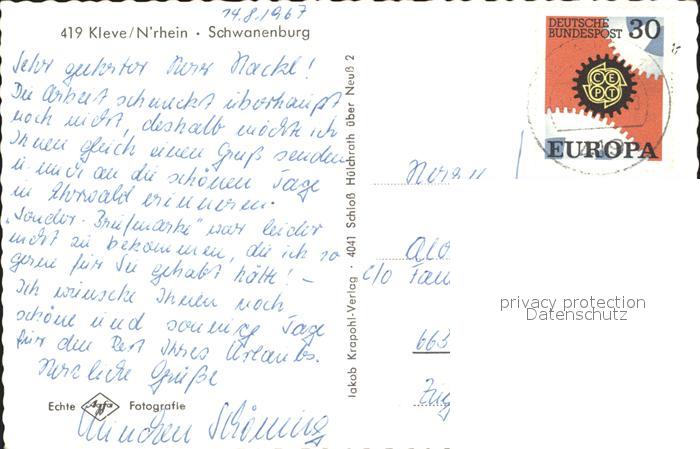 14.8.1967
419 Kleve/N'rhein · Schwanenburg
Sehr geehrter Herr Hackl!
Die Arbeit schmeckt überhaupt
noch nicht, deshalb möchte ich
Ihnen gleich einen Gruß senden
u. mich an die schönen Tage
in Ehrwald erinnern.
"Sonder-Briefmarke" war leider
nicht zu bekommen, die ich so
gerne für Sie gehabt hätte! –
Ich wünsche Ihnen noch
schöne und sonnige Tage
für den Rest Ihres Urlaubs.
Herzliche Grüße
Echte Agfa Fotografie
Jakob Krapohl-Verlag · 4041 Schloß Hülchrath über Neuß 2
DEUTSCHE
BUNDESPOST 30
CEPT
EUROPA
Herrn
c/o
663
privacy protection
Datenschutz